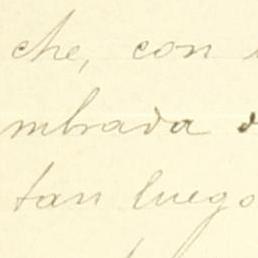 che, con
mbrada
tan luego